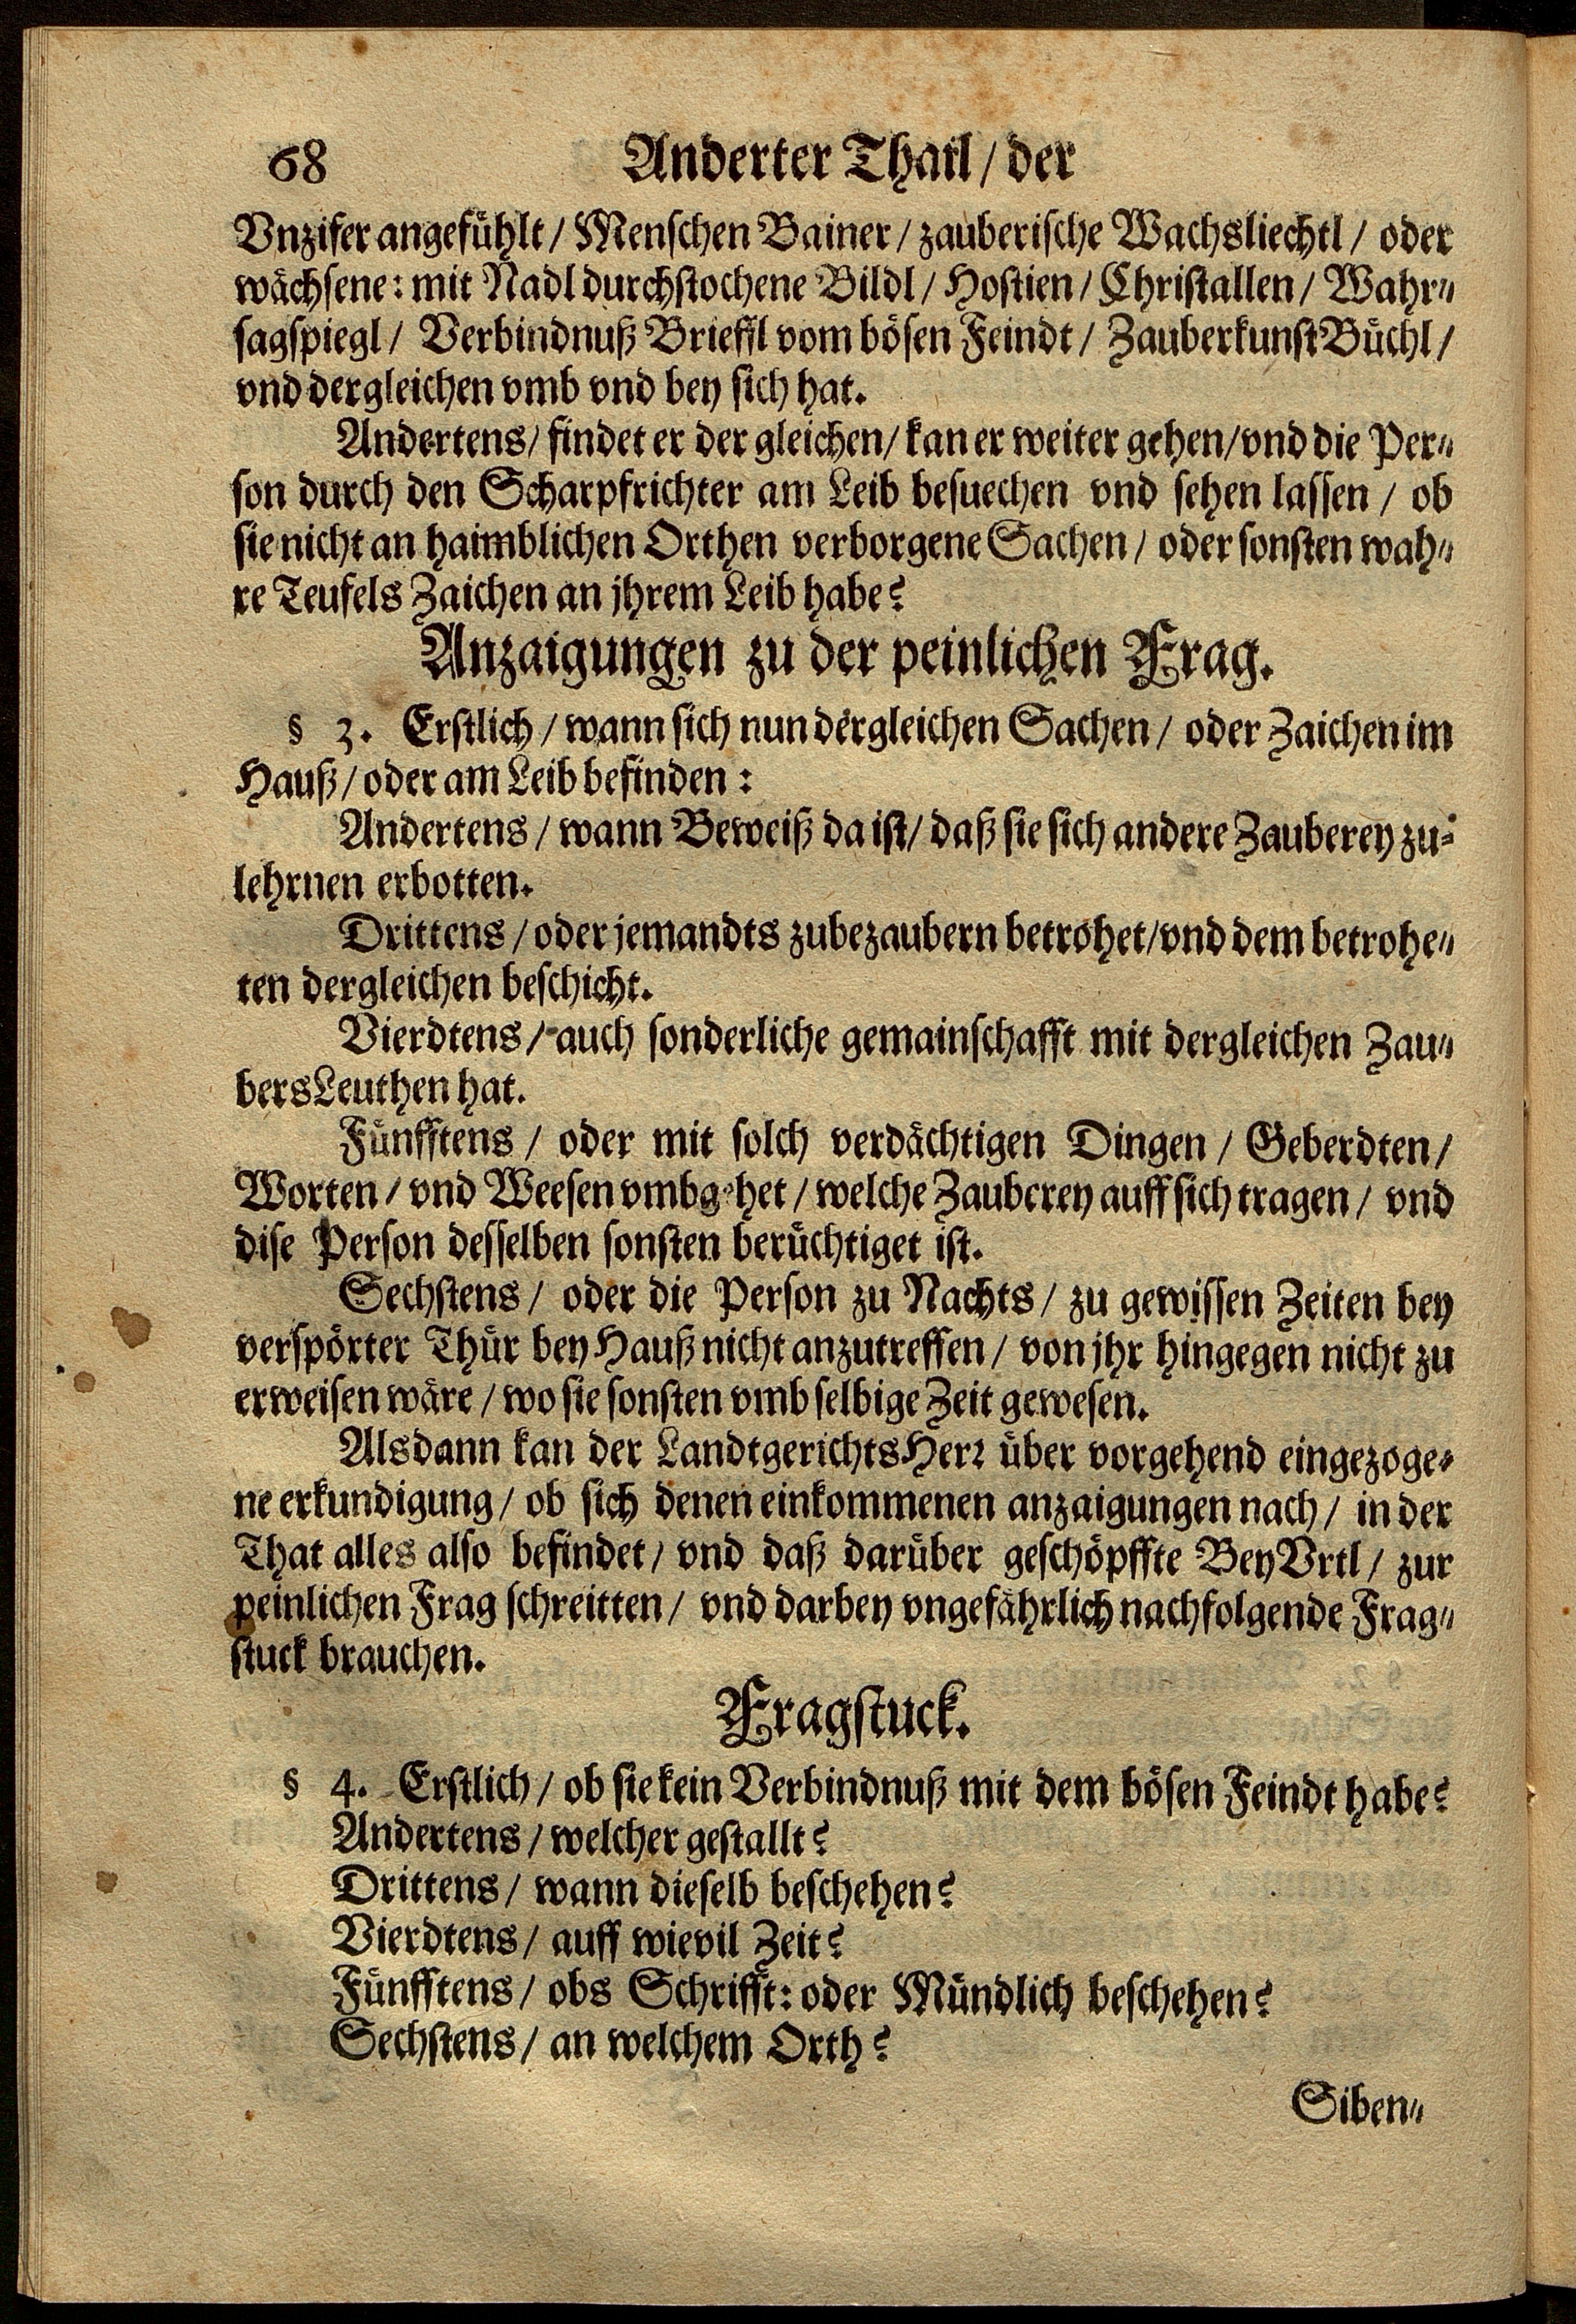 68 Anderter Thail / der
Vnzifer angefühlt / Menschen Bainer / zauberische Wachsliechtl / oder
wächsene: mit Nadl durchstochene Bildl / Hostien / Christallen / Wahr⸗
sagspiegl / Verbindnuß Brieffl vom bösen Feindt / ZauberkunstBüchl /
vnd dergleichen vmb vnd bey sich hat.
Andertens / findet er der gleichen / kan er weiter gehen / vnd die Per⸗
son durch den Scharpfrichter am Leib besuechen vnd sehen lassen / ob
sie nicht an haimblichen Orthen verborgene Sachen / oder sonsten wah⸗
re Teufels Zaichen an jhrem Leib habe?
Anzaigungen zu der peinlichen Frag.
§ 3. Erstlich / wann sich nun dergleichen Sachen / oder Zaichen im
Hauß / oder am Leib befinden:
Andertens / wann Beweiß da ist / daß sie sich andere Zauberey zu⸗
lehrnen erbotten.
Drittens / oder jemandts zubezaubern betrohet / vnd dem betrohe⸗
ten dergleichen beschicht.
Vierdtens / auch sonderliche gemainschafft mit dergleichen Zau⸗
bersLeuthen hat.
Fünfftens / oder mit solch verdächtigen Dingen / Geberdten /
Worten / vnd Weesen vmbgehet / welche Zauberey auff sich tragen / vnd
dise Person desselben sonsten berüchtiget ist.
Sechstens / oder die Person zu Nachts / zu gewissen Zeiten bey
verspörter Thür bey Hauß nicht anzutreffen / von jhr hingegen nicht zu
erweisen wäre / wo sie sonsten vmb selbige Zeit gewesen.
Alsdann kan der LandtgerichtsHerr über vorgehend eingezoge⸗
ne erkundigung / ob sich denen einkommenen anzaigungen nach / in der
That alles also befindet / vnd daß darüber geschöpffte BeyVrtl / zur
peinlichen Frag schreitten / vnd darbey vngefährlich nachfolgende Frag⸗
stuck brauchen.
Fragstuck.
§ 4. Erstlich / ob sie kein Verbindnuß mit dem bösen Feindt habe?
Andertens / welcher gestallt?
Drittens / wann dieselb beschehen?
Vierdtens / auff wievil Zeit?
Fünfftens / obs Schrifft: oder Mündlich beschehen?
Sechstens / an welchem Orth?
Siben⸗